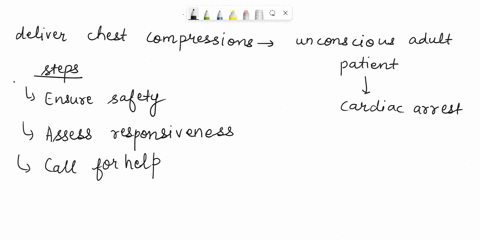 deliver chest compressions → unconscious adult patient
↓
cardiac arrest
steps
↳ Ensure safety
↳ Assess responsiveness
↳ Call for help